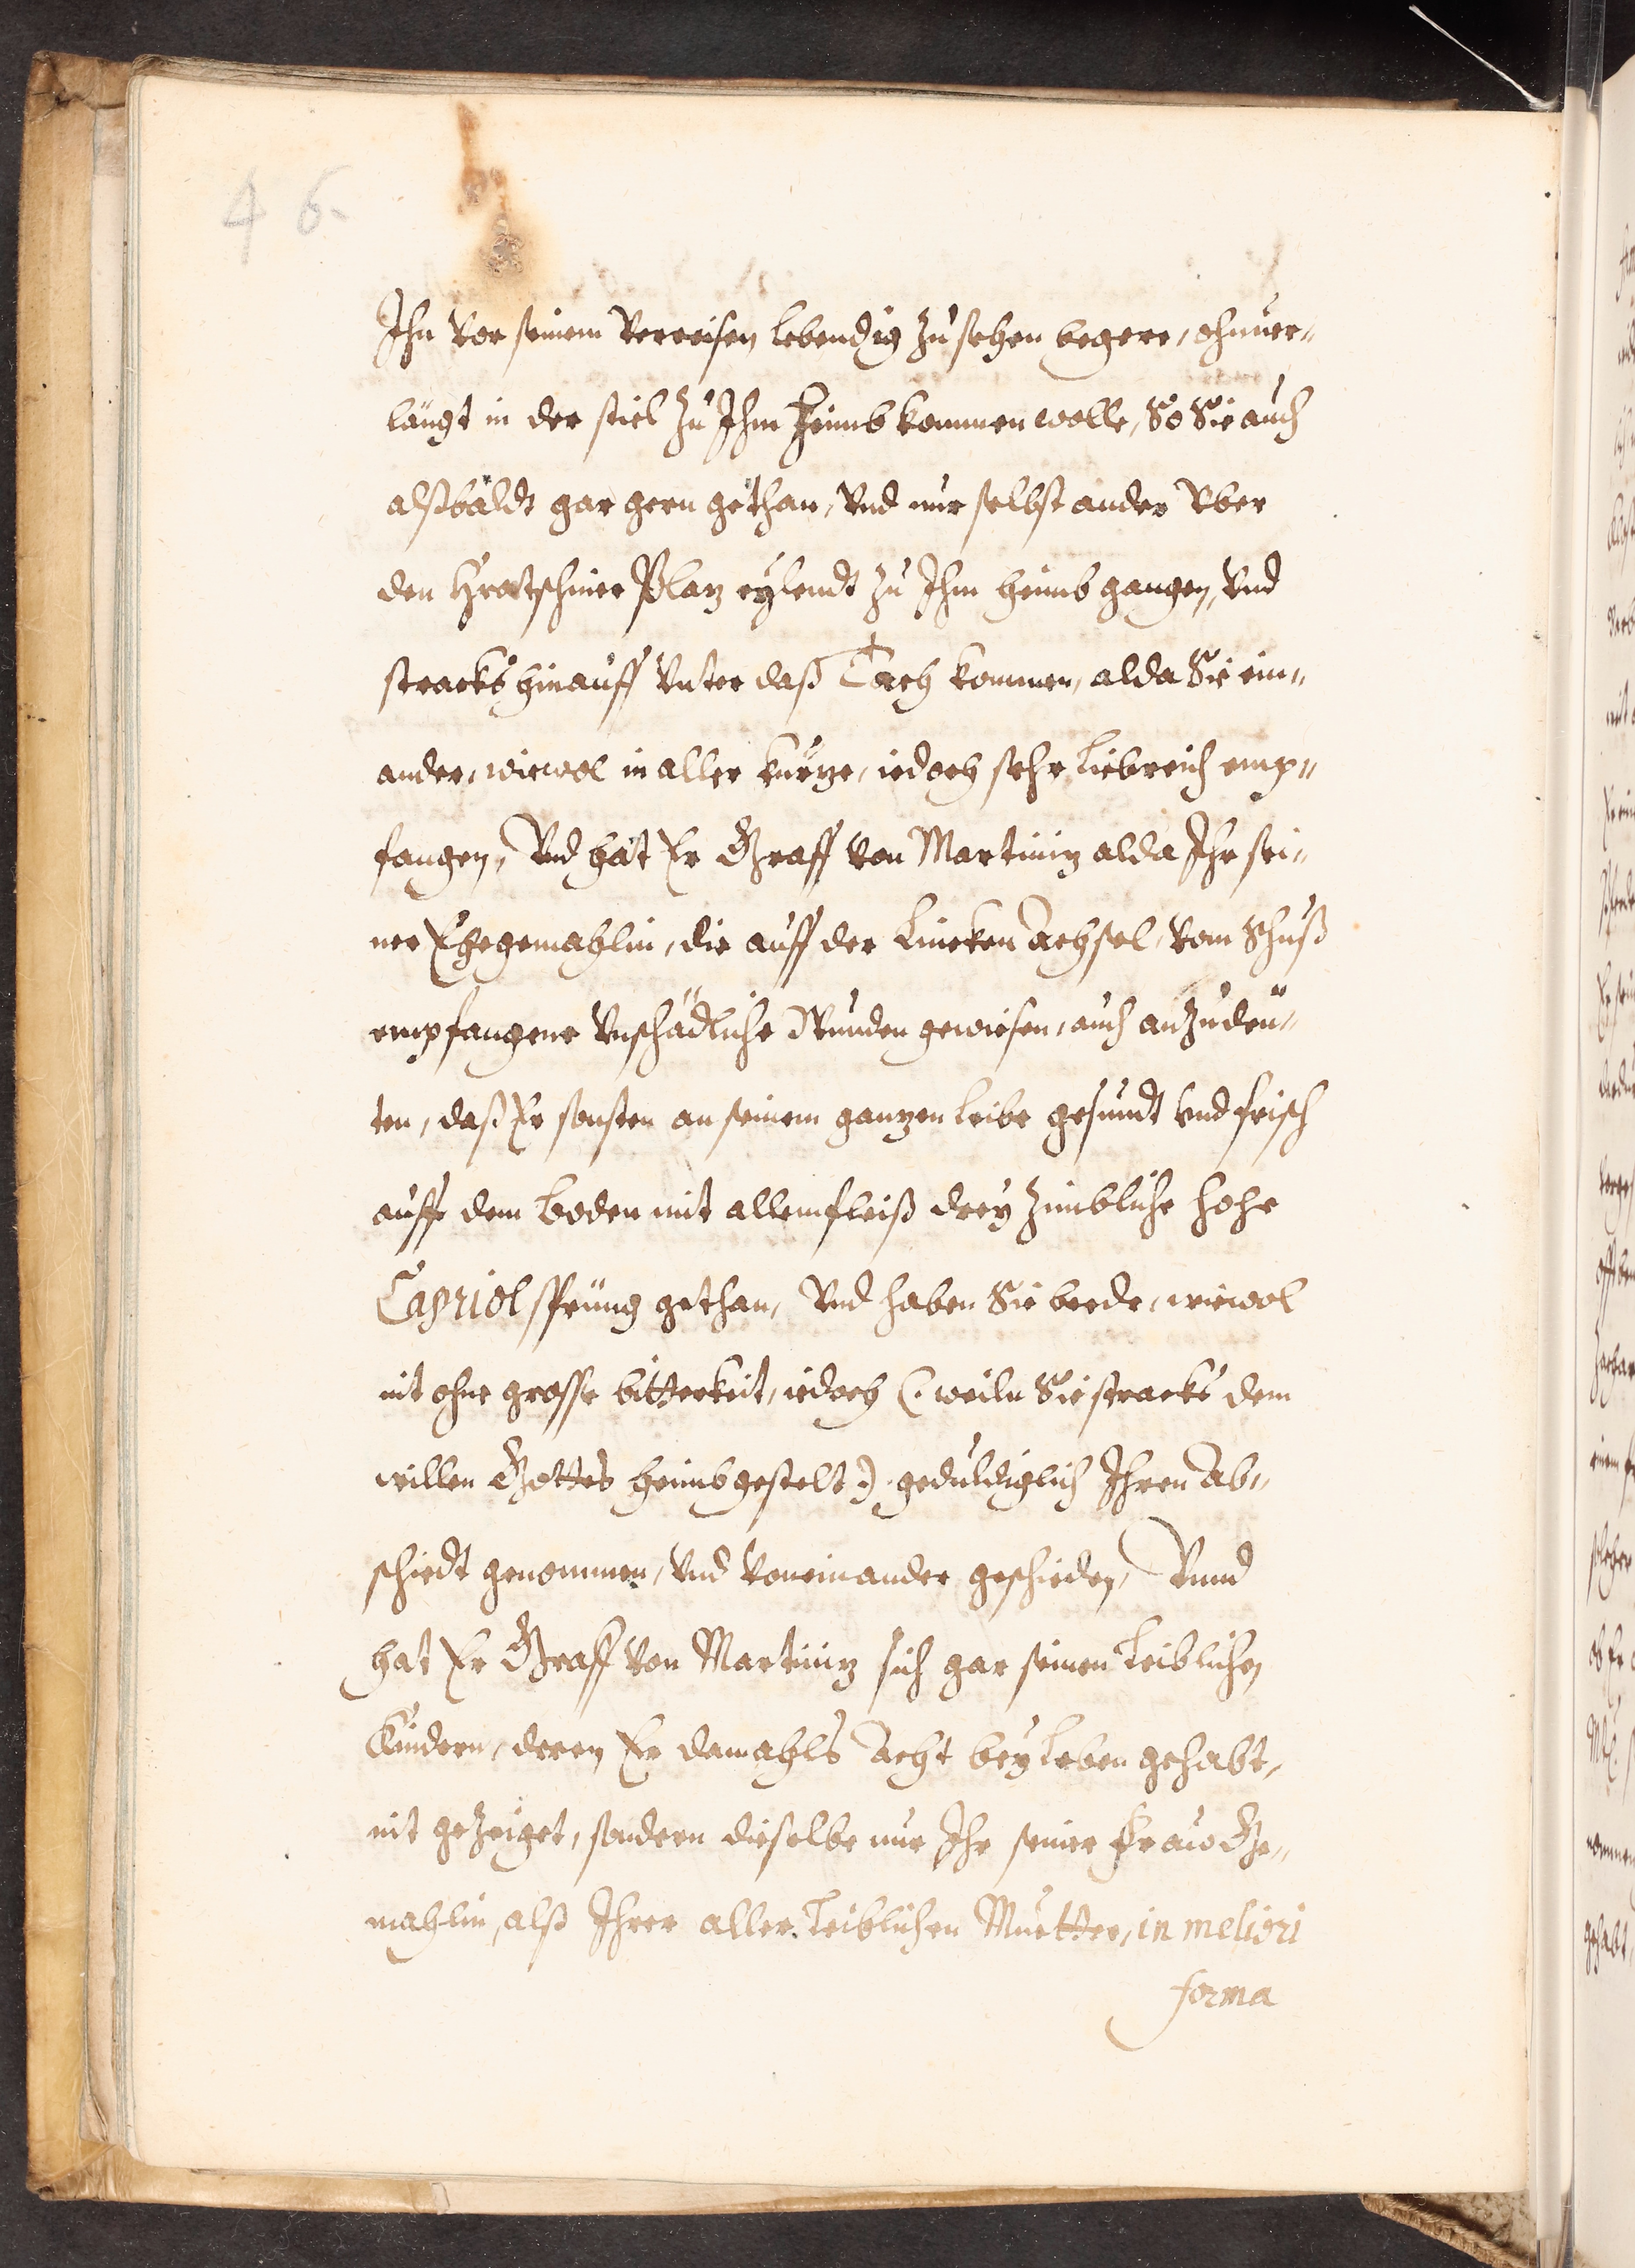 46.
Ihn vor seinem Verreisen lebendig zu sehen begere, ohnuer„
längt in der stiel zu Ihm heimb kommen wolle, So Sie auch
alßbaldt gar gern gethan, Vnd nur selbst ander Vber
den Hratschiner Platz eylendt zu Ihm heimb gangen, Vnd
stracks hinauff Vnter daß Tach kommen, alda Sie ein„
ander, wiewol in aller kürtze, iedoch sehr liebreich emp„
fangen, Vnd hat Er Graff von Martinitz alda Ihr sei„
ner Ehegemahlin, die auff der Lincken Achsel, vom Schuß
empfangene Vnschädliche Wunden gewiesen, auch anzudeü„
ten, daß Er sonsten an seinem gantzen leibe gesundt Vnd frisch
auff dem boden mit allem fleiß drey zimbliche hohe
Capriol sprüng gethan, Vnd haben Sie beede, wiewol
nit ohne grosse bitterkeit, iedoch (: weiln Sie stracks dem
willen Gottes heimbgestelt:) geduldiglich Ihren Ab„
schiedt genommen, Vnd Voneinander geschieden, Vnnd
hat Er Graff von Martinitz sich gar seinen Leiblichen
Kindern, deren Er damahls Acht bey Leben gehabt,
nit gezeiget, sondern dieselbe nur Ihr seiner Fraw Ge„
mahlin, alß Ihrer aller Leiblichen Muetter, in meliori
forma